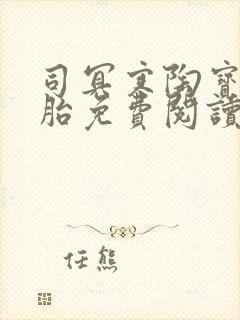 司冥寒陶寶
胎免費閱讀
任熊